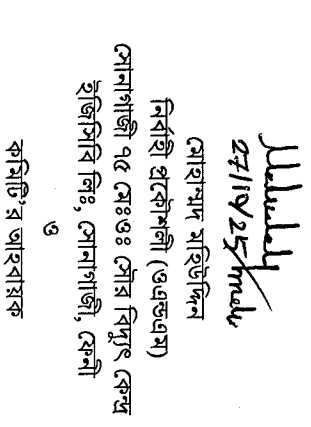 27/10/25
মোহাম্মদ মহিউদ্দিন
নির্বাহী প্রকৌশলী (ওএন্ডএম)
সোনাগাজী ৭৫ মেঃওঃ সৌর বিদ্যুৎ কেন্দ্র
ইজিসিবি লিঃ, সোনাগাজী, ফেনী
ও
কমিটি'র আহবায়ক